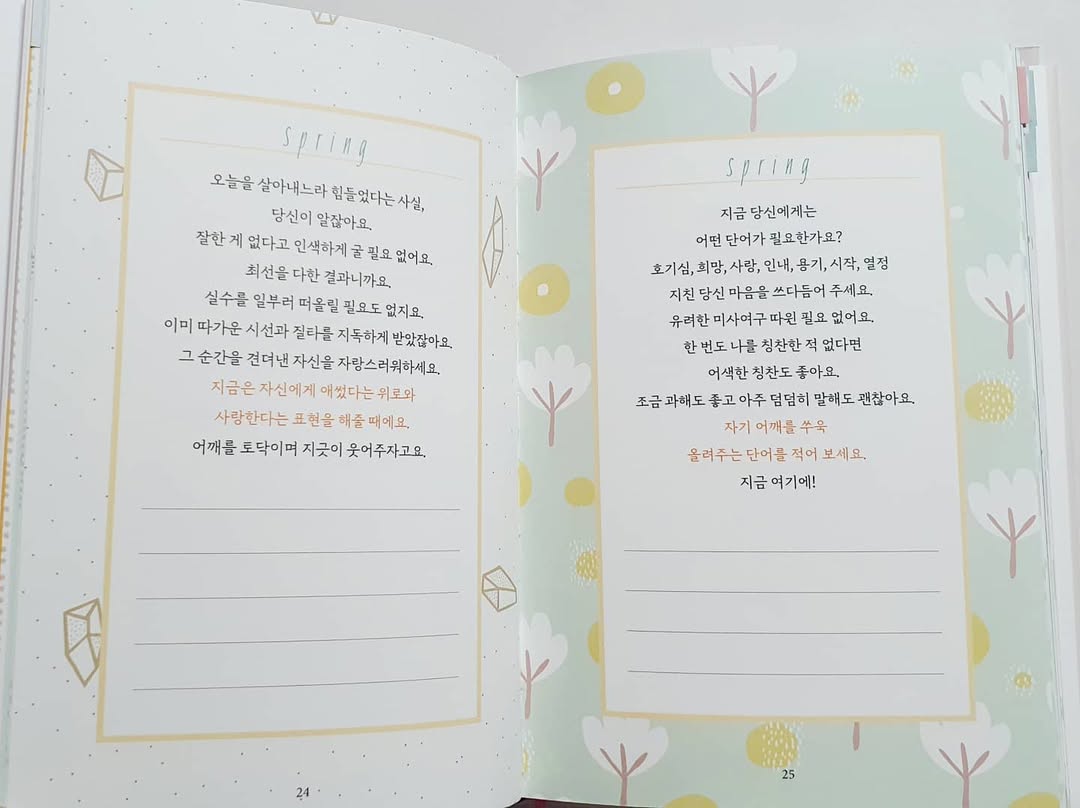 spring
오늘을 살아내느라 힘들었다는 사실,
당신이 알잖아요.
잘한 게 없다고 인색하게 굴 필요 없어요.
최선을 다한 결과니까요.
실수를 일부러 떠올릴 필요도 없지요.
이미 따가운 시선과 질타를 지독하게 받았잖아요.
그 순간을 견뎌낸 자신을 자랑스러워하세요.
지금은 자신에게 애썼다는 위로와
사랑한다는 표현을 해줄 때에요.
어깨를 토닥이며 지긋이 웃어주자고요.
24
spring
지금 당신에게는
어떤 단어가 필요한가요?
호기심, 희망, 사랑, 인내, 용기, 시작, 열정
지친 당신 마음을 쓰다듬어 주세요.
유려한 미사여구 따윈 필요 없어요.
한 번도 나를 칭찬한 적 없다면
어색한 칭찬도 좋아요.
조금 과해도 좋고 아주 덤덤히 말해도 괜찮아요.
자기 어깨를 쑤욱
올려주는 단어를 적어 보세요.
지금 여기에!
25